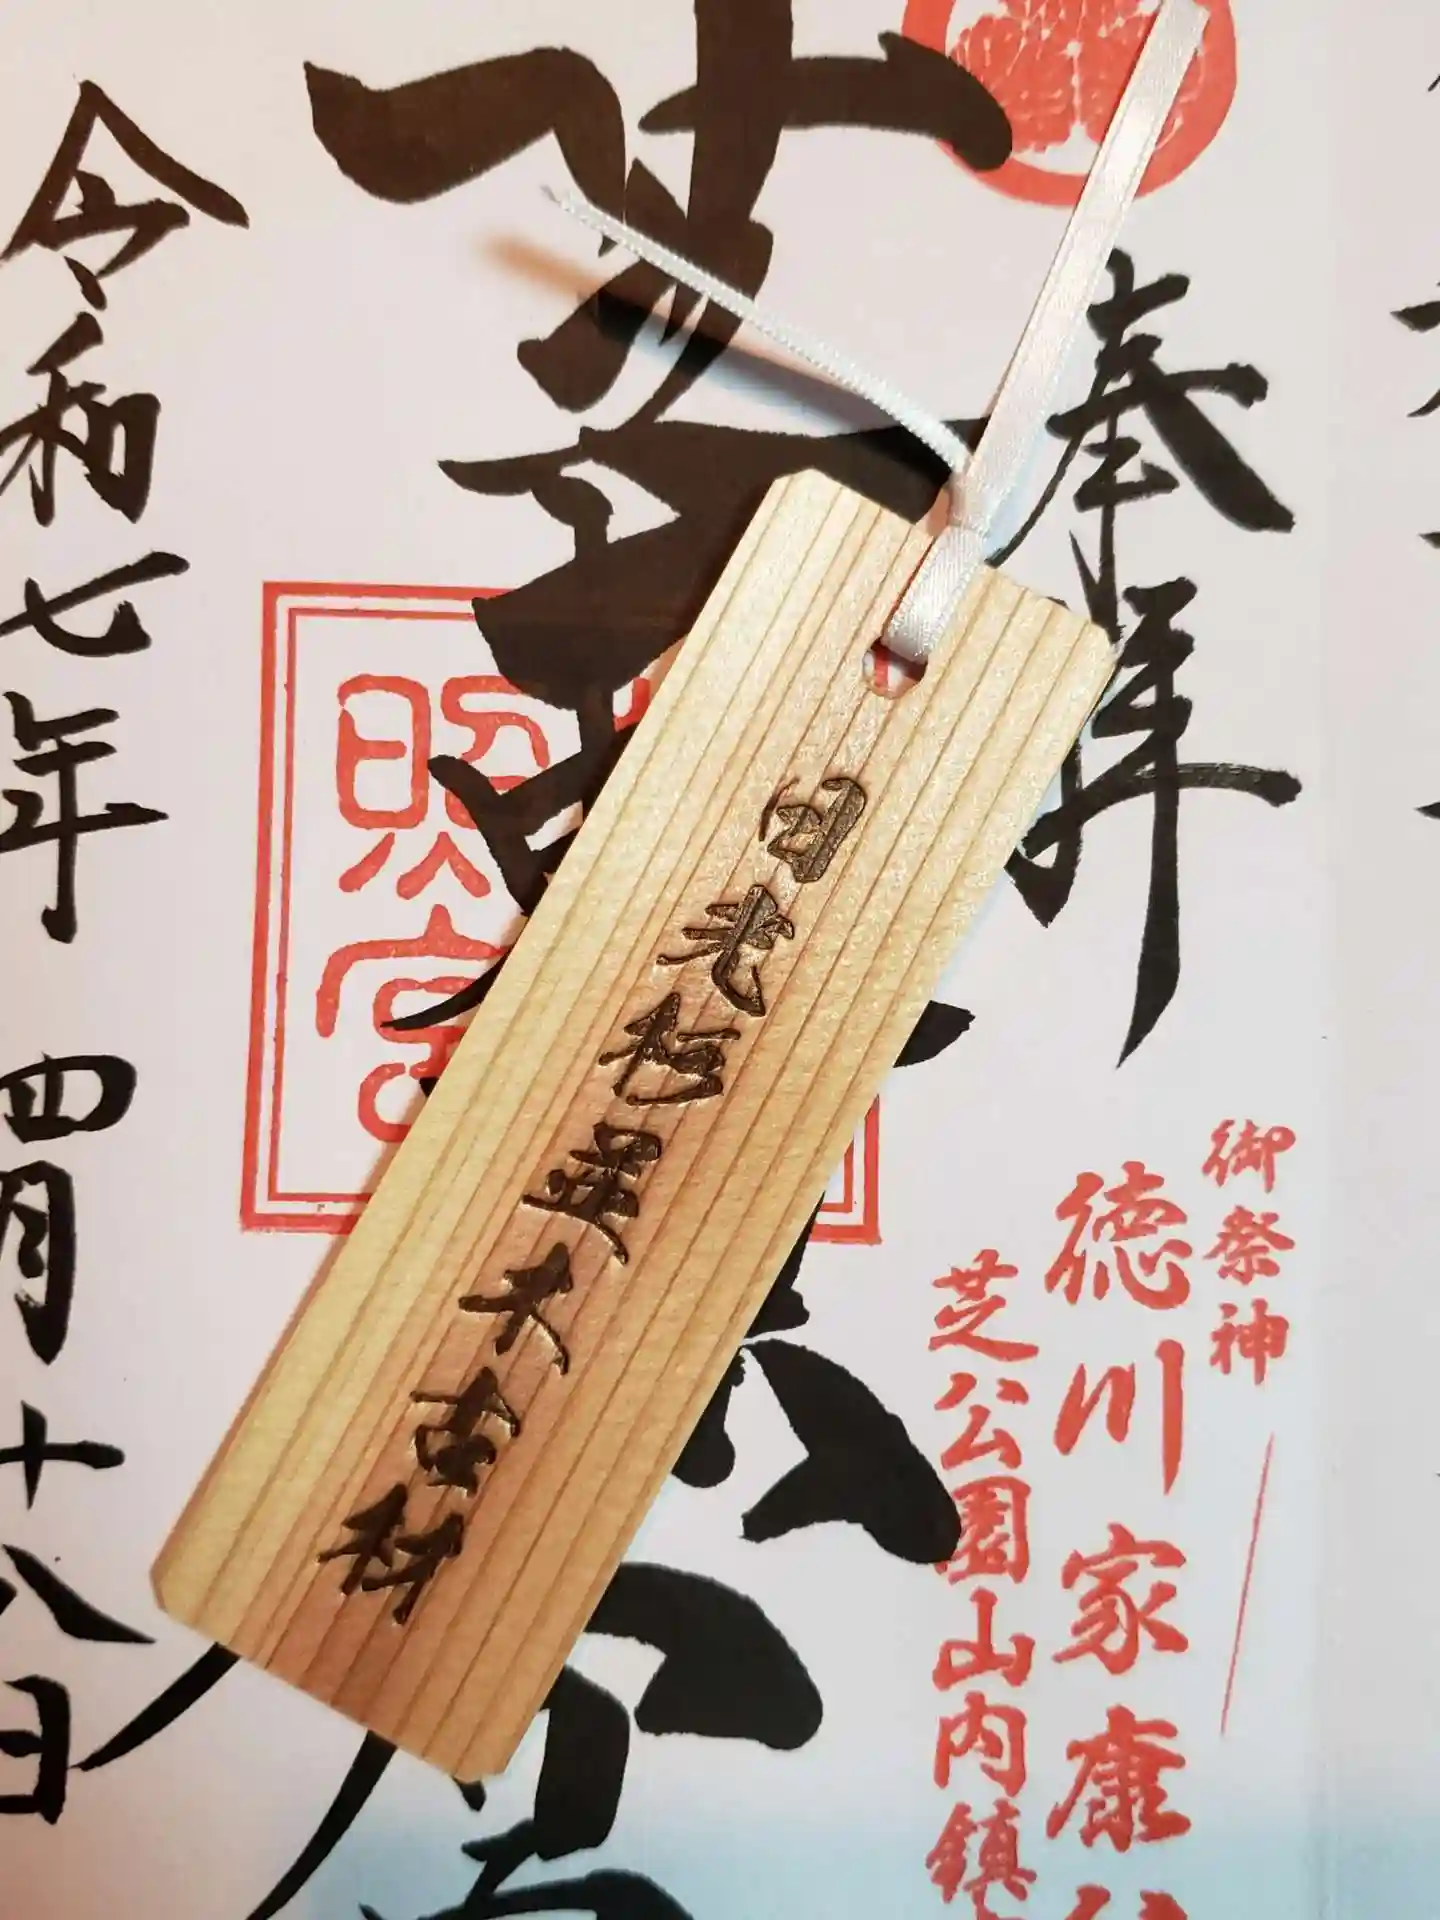 奉拝
御祭神
徳川家康
芝公園山内鎮
芝東照宮
照宮
日光杉並木古材
令和七年 四月十八日